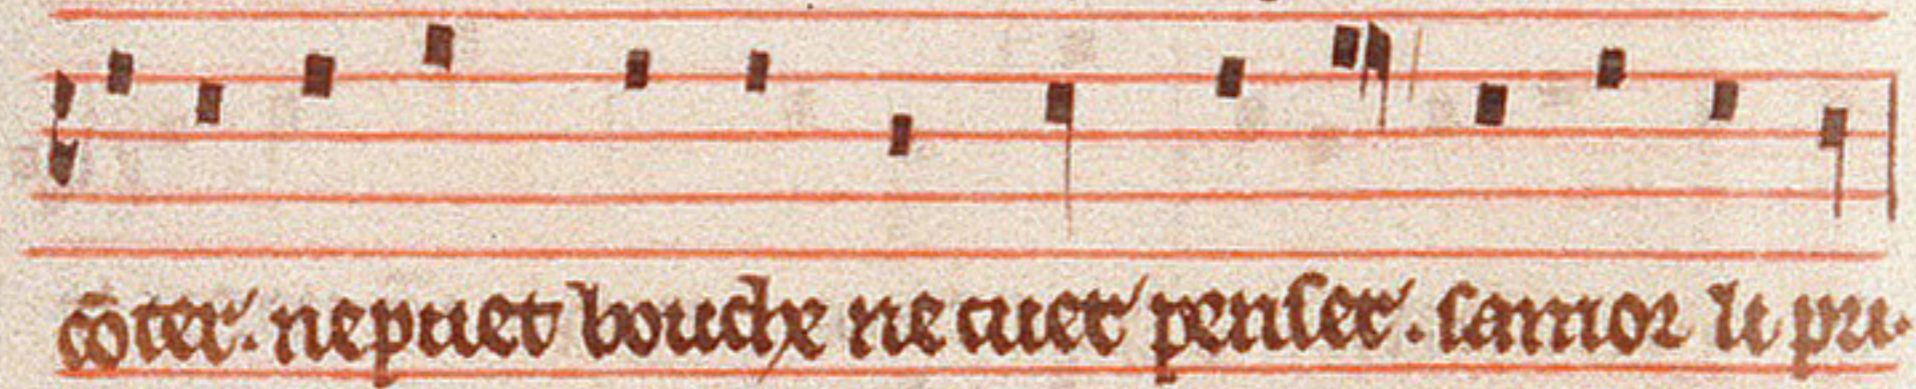 cōter. ne puet bouche ne cuer penser. samor li pri.